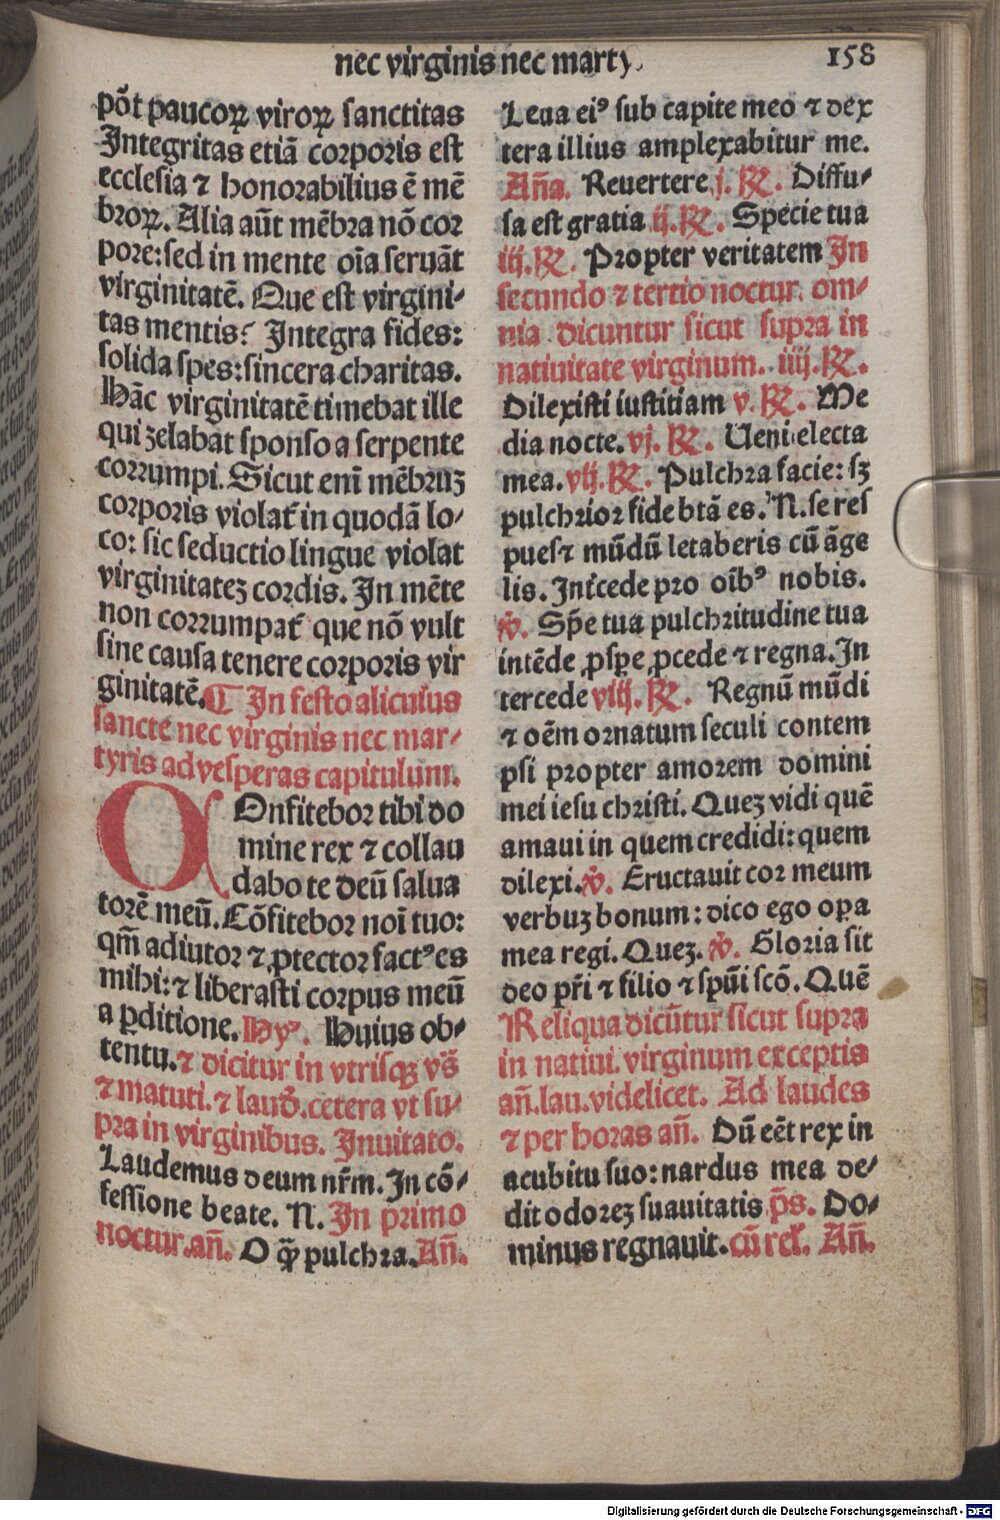 nec virginis nec marty
158
põt paucoꝝ viroꝝ sanctitas
Integritas etiā corporis est
ecclesia ⁊ honorabilius ē mē
broꝝ. Alia aūt mēbra nō cor
pore: sed in mente oīa seruāt
virginitatē. Que est virgini⸗
tas mentis? Integra fides:
solida spes: sincera charitas.
Hāc virginitatē timebat ille
qui zelabat sponso a serpente
corrumpi. Sicut eni mēbruꝫ
corporis violat᷑ in quodā lo⸗
co: sic seductio lingue violat
virginitateꝫ cordis. In mēte
non corrumpat᷑ que nō vult
sine causa tenere corporis vir
ginitatē. ¶ In festo alicuius
sancte nec virginis nec mar⸗
tyris ad vesperas capitulum.
COnfitebor tibi do
mine rex ⁊ collau
dabo te deū salua
torē meū. Cōfitebor noī tuo:
qm̄ adiutor ⁊ ꝓtector factꝰ es
mihi: ⁊ liberasti corpus meū
a ꝑditione. Hyꝰ. Huius ob⸗
tentu. ⁊ dicitur in vtrisqꝫ vs̄
⁊ matuti. ⁊ laud̄. cetera vt su⸗
pra in virginibus. Inuitato.
Laudemus deum nr̄m. In cō⸗
fessione beate. N. In primo
noctur. an̄. O q̄ꝫ pulchra. An̄.
Leua eiꝰ sub capite meo ⁊ dex
tera illius amplexabitur me.
An̄a. Reuertere. j. ℟. Diffu⸗
sa est gratia ij. ℟. Specie tua
iij. ℟. Propter veritatem In
secundo ⁊ tertio noctur. om⸗
nia dicuntur sicut supra in
natiuitate virginum. iiij. ℟.
Dilexisti iustitiam v. ℟. Me
dia nocte. vj. ℟. Ueni electa
mea. vij. ℟. Pulchra facie: sꝫ
pulchrior fide btā es. N. se res
pues⁊ mūdū letaberis cū āge
lis. Int᷑cede pro oībꝰ nobis.
℣. Sp̄e tua pulchritudine tua
intēde ꝓsꝑe ꝓcede ⁊ regna. In
tercede viij. ℟. Regnū mūdi
⁊ oēm ornatum seculi contem
psi propter amorem domini
mei iesu christi. Queꝫ vidi quē
amaui in quem credidi: quem
dilexi. ℣. Eructauit cor meum
verbuꝫ bonum: dico ego oꝑa
mea regi. Queꝫ. ℣. Gloria sit
deo pr̄i ⁊ filio ⁊ spūi scō. Quē
Reliqua dicūtur sicut supra
in natiui. virginum exceptis
an̄. lau. videlicet. Ad laudes
⁊ per horas an̄. Dū eēt rex in
acubitu suo: nardus mea de⸗
dit odoreꝫ suauitatis p̄s. Do⸗
minus regnauit. cū rel̄. An̄.
Digitalisierung gefördert durch die Deutsche Forschungsgemeinschaft - DFG